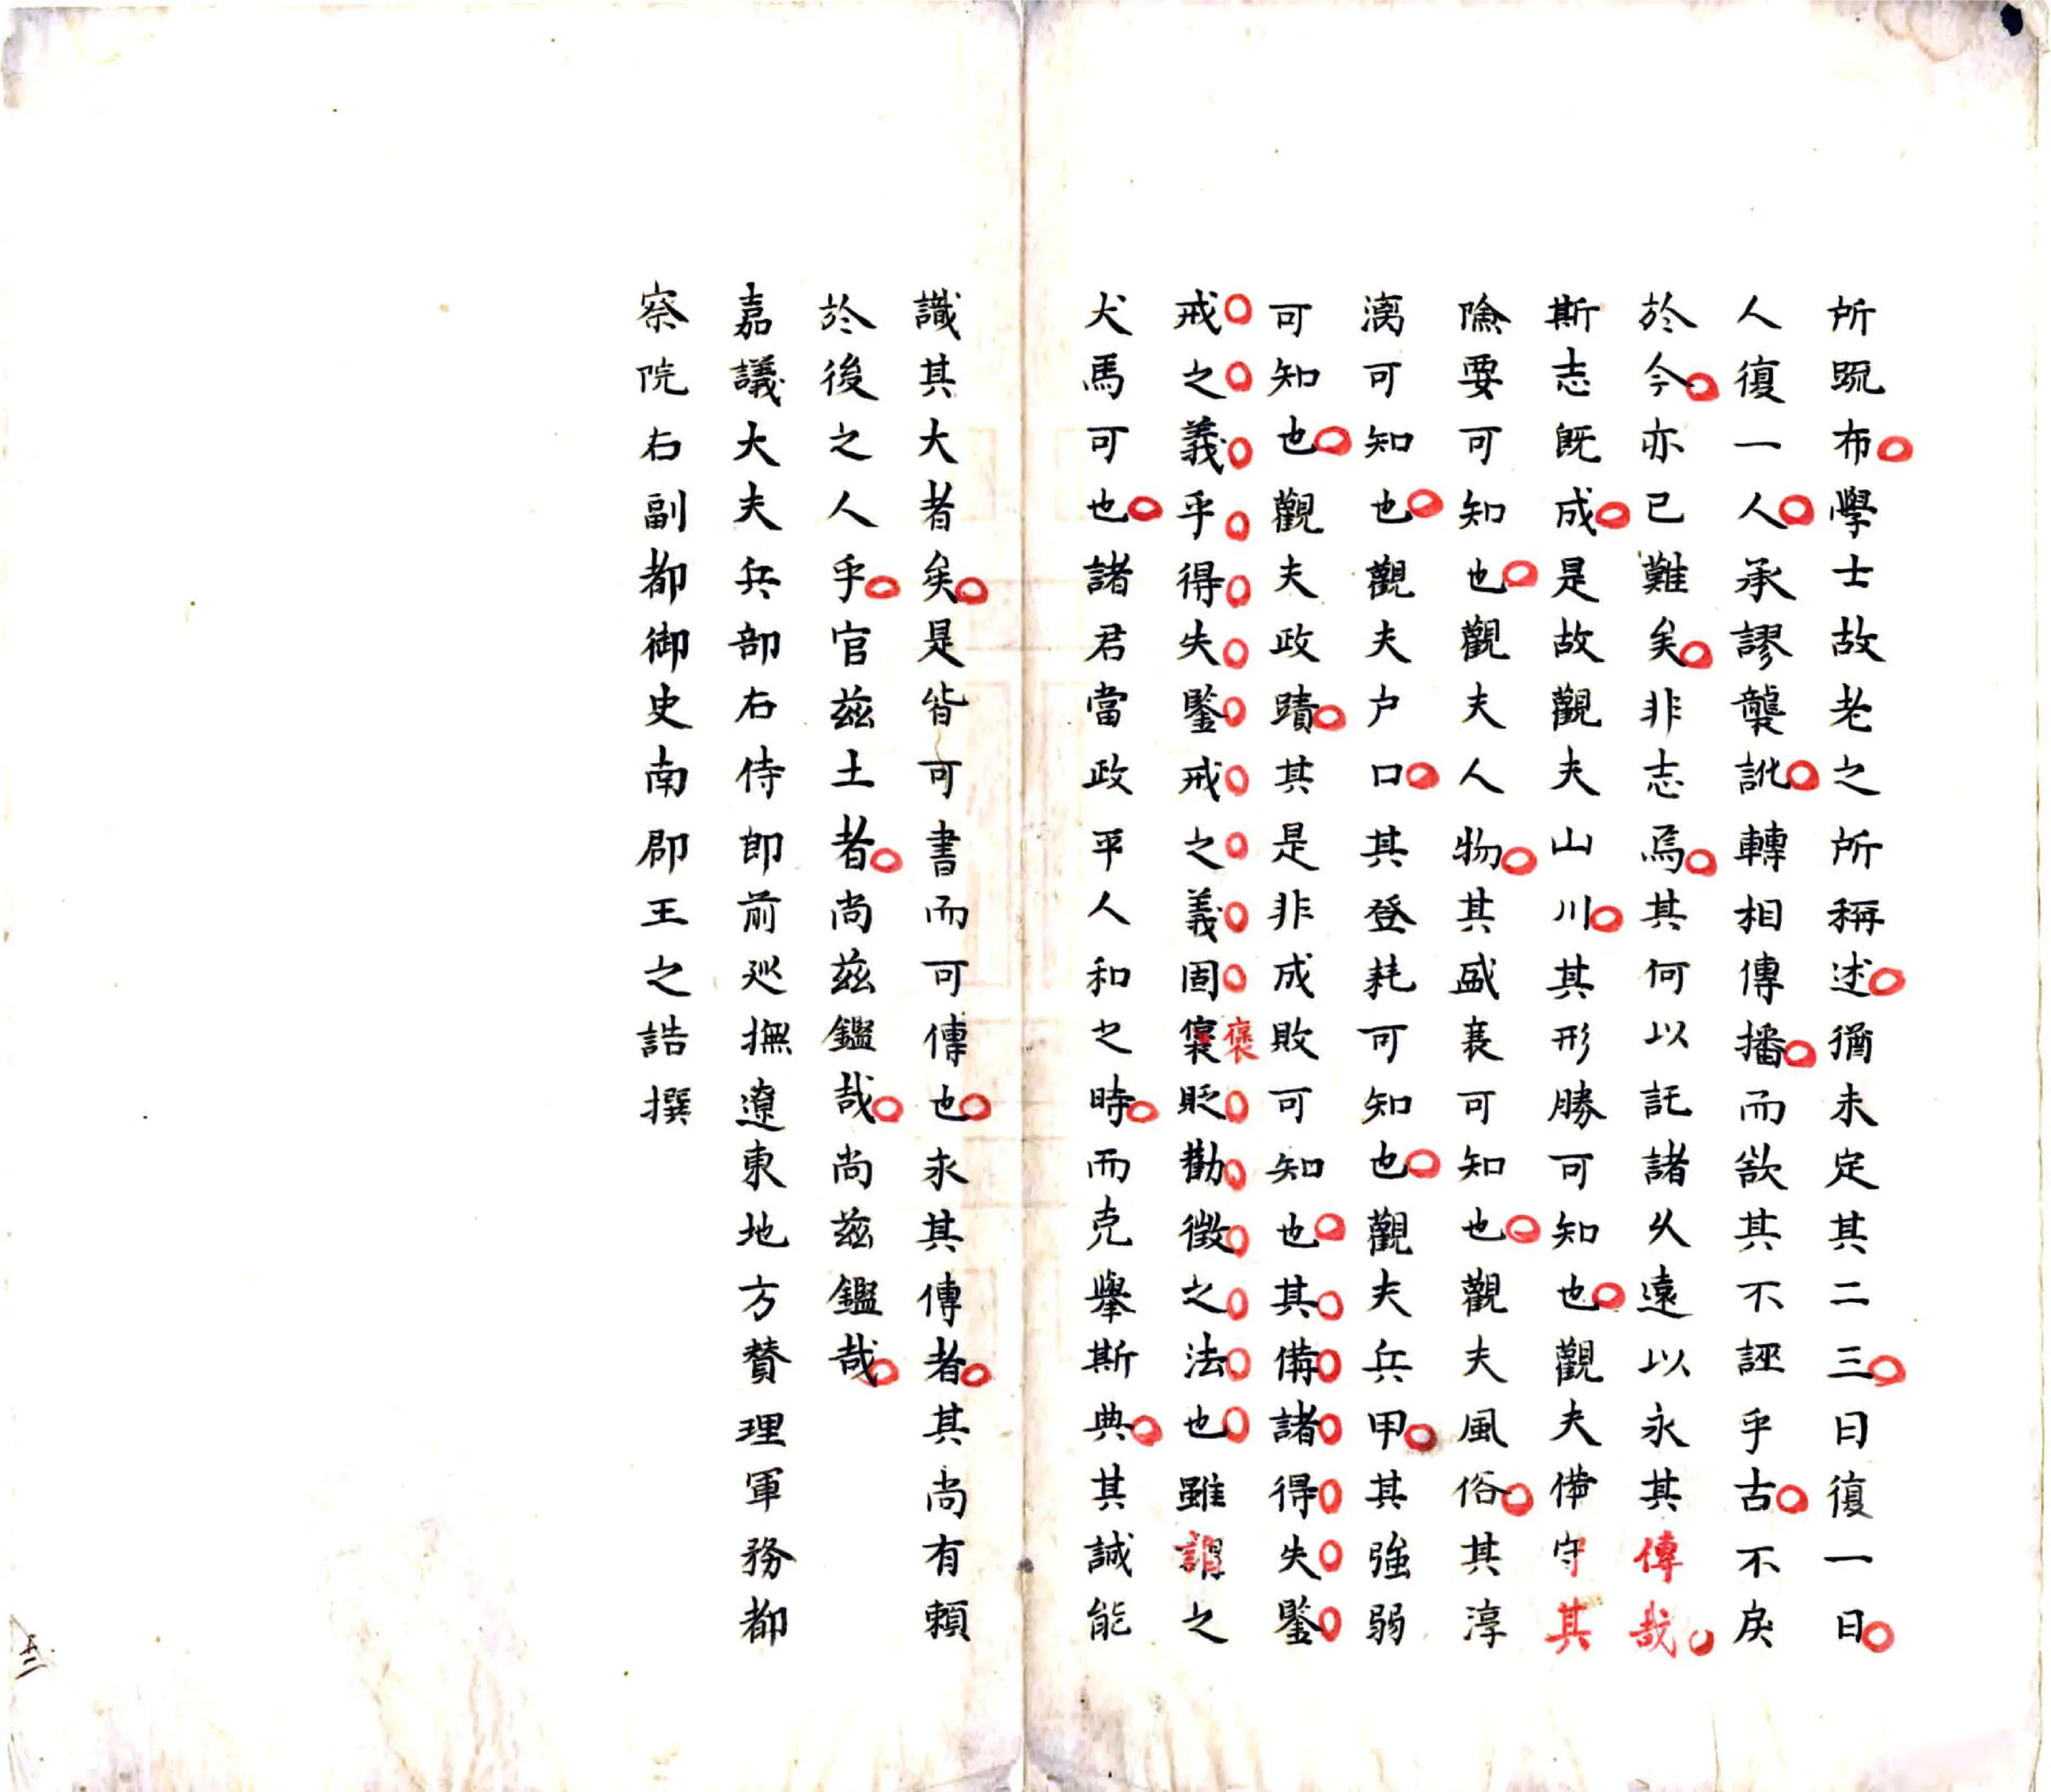 所䟽布學士故老之所稱述猶未定其二三日復一日
人復一人承謬襲訛轉相傳播而欲其不誣乎古不戾
於今亦已難矣非志焉其何以託諸久遠以永其傳哉
斯志既成是故觀夫山川其形勝可知也觀夫備守其
險要可知也觀夫人物其盛衰可知也觀夫風俗其淳
漓可知也觀夫户口其登耗可知也觀夫兵甲其強弱
可知也觀夫政蹟其是非成敗可知也其備諸得失鑒
戒之義乎得失鑒戒之義固褒貶勸徵之法也雖謂之
犬馬可也諸君當政平人和之時而克舉斯典其誠能
識其大者矣是皆可書而可傳也永其傳者其尚有賴
於後之人乎官兹土者尚兹鑑哉尚兹鑑哉
嘉議大夫兵部右侍郎前廵撫遼東地方贊理軍務都
察院右副都御史南郡王之誥撰
褒
十三